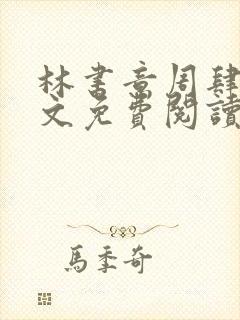 林書音周肆
文免費閱讀
馬季奇